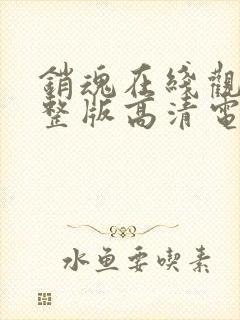 銷魂在綫觀
整版高清電
水鱼要喫素